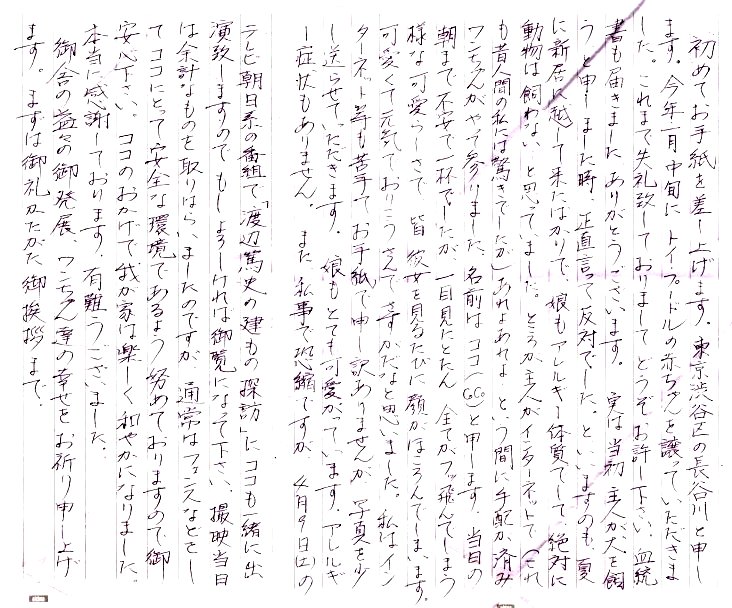 初めてお手紙を差し上げます。東京渋谷区の長谷川と申し
ます。今年一月中旬にトイプードルの赤ちゃんを譲っていただきま
した。これまで失礼致しておりましてどうぞお許し下さい。血統
書も届きました ありがとうございます。実は当初 主人が、犬を飼
うと申しました時、正直言って反対でした。といいますのも、夏
に新居に越して来たばかりで、娘もアレルギー体質でして、絶対に
動物は飼わないと思っていました。ところが主人がインターネットで（これ
も昔人間の私には驚きでしたが）あれよあれよという間に手配が済み
ワンちゃんがやって参りました、名前はココ（CoCo）と申します 当日の
朝まで不安で一杯でしたが、一目見たとたん 全てがフッ飛んでしまう
様な可愛らしさで 皆 彼女を見るたびに顔がほころんでしまいます。
可愛くて元気でおりこうさんで、さすがだなと思いました。私はイン
ターネット等も苦手でお手紙で申し訳ありませんが、写真を少
し送らせていただきます。娘もとても可愛がっています。アレルギ
ー症状もありません。また 私事で恐縮ですが 4月9日(土)の
テレビ朝日系の番組で「渡辺篤史の建もの探訪」にココも一緒に出
演致しますので もしよろしければ御覧になって下さい、撮影当日
は余計なものを取りはらいましたのですが、通常はフェンスなどをし
てココにとって安全な環境であるよう努めておりますので、御
安心下さい。ココのおかげで我が家は楽しく和やかになりました。
本当に感謝しております。有難うございました。
御舎の益々の御発展、ワンちゃん達の幸せをお祈り申し上げ
ます。まずは御礼かたがた御挨拶まで。